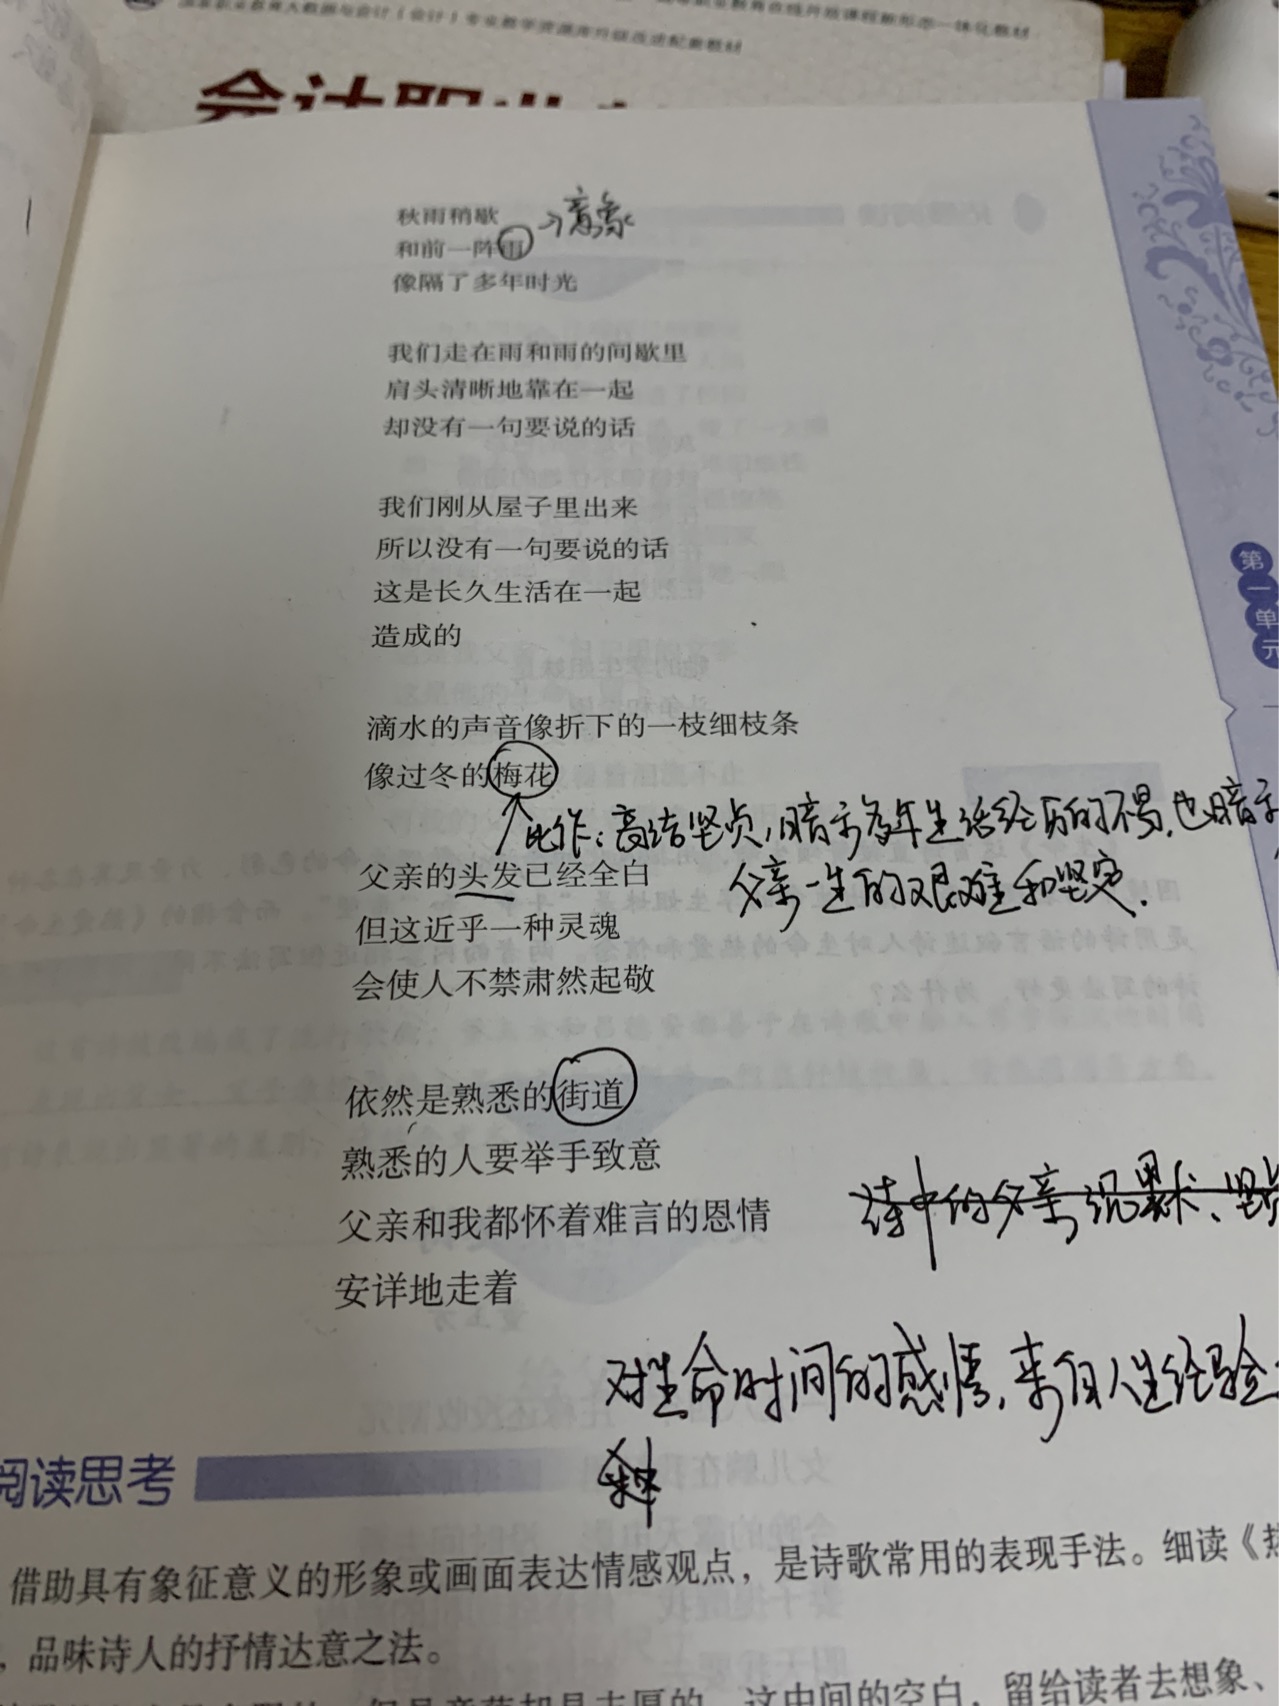 会计职业
秋雨稍歇
意象
和前一阵雨
像隔了多年时光
我们走在雨和雨的间歇里
肩头清晰地靠在一起
却没有一句要说的话
我们刚从屋子里出来
所以没有一句要说的话
这是长久生活在一起
造成的
滴水的声音像折下的一枝细枝条
像过冬的梅花
比作:高洁坚贞,暗示多年生活经历的不易,也暗示
父亲的头发已经全白
父亲一生的艰难和坚定.
但这近乎一种灵魂
会使人不禁肃然起敬
依然是熟悉的街道
熟悉的人要举手致意
父亲和我都怀着难言的恩情
诗中的父亲沉默、坚
安详地走着
对生命时间的感情,来自人生经验
阅读思考
借助具有象征意义的形象或画面表达情感观点，是诗歌常用的表现手法。细读《热
，品味诗人的抒情达意之法。
这中间的空白，留给读者去想象、
第一单元